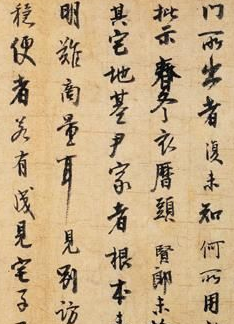 門所出者復未知何所用
批示春冬衣曆頭賢郎未
其宅地基尹家者根本未
明難商量耳見別訪
穩便者若有成見宅子